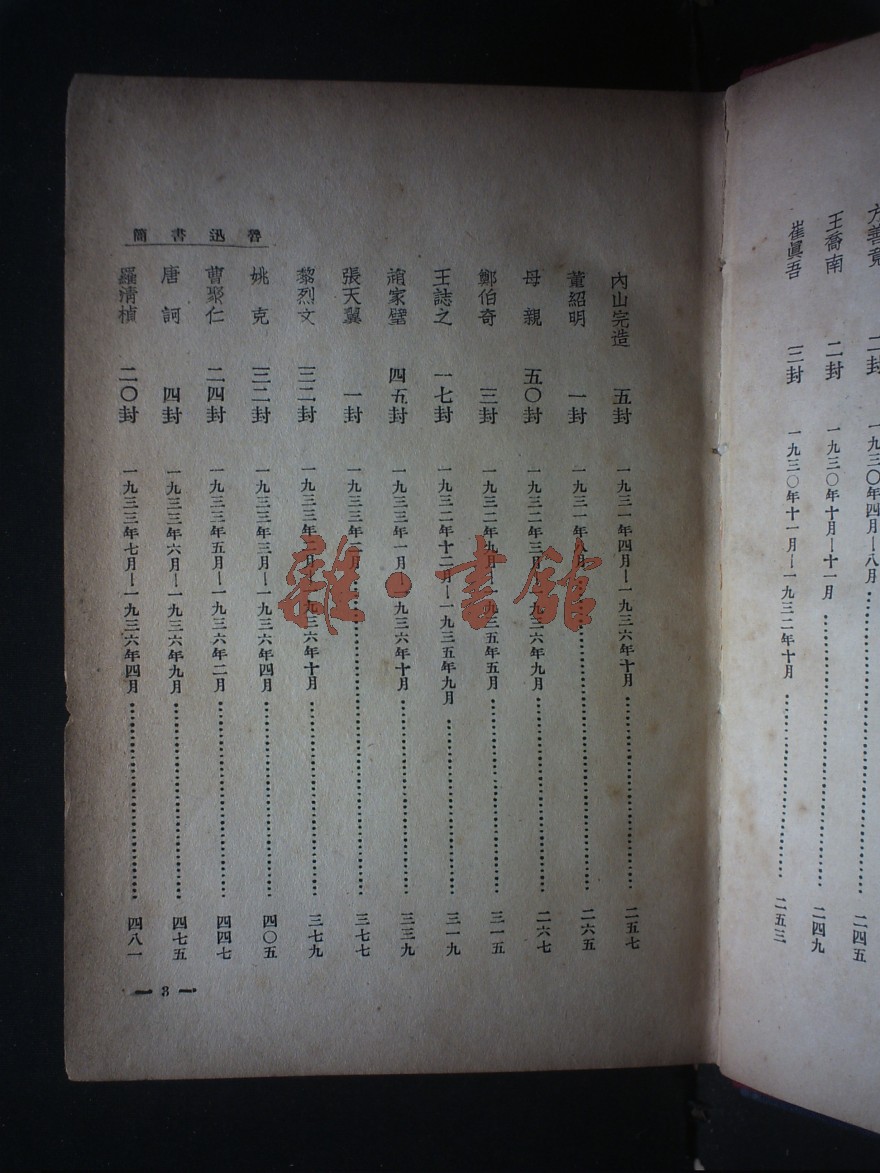 方善竟 二封 一九三〇年四月—八月………………二四五
王喬南 二封 一九三〇年十月—十一月………………二四九
崔眞吾 三封 一九三〇年十一月—一九三二年十月………………二五三
魯迅書簡
內山完造 五封 一九三一年四月—一九三六年十月………………二五七
董紹明 一封 一九三一年八月………………二六五
母親 五〇封 一九三二年三月—一九三六年九月………………二六七
鄭伯奇 三封 一九三二年九月—一九三五年五月………………三一五
王誌之 一七封 一九三二年十二月—一九三五年九月………………三一九
趙家璧 四五封 一九三三年一月—一九三六年十月………………三三九
張天翼 一封 一九三三年二月………………三七七
黎烈文 三二封 一九三三年月—一九三六年十月………………三七九
姚克 三二封 一九三三年三月—一九三六年四月………………四〇五
曹聚仁 二四封 一九三三年五月—一九三六年二月………………四四七
唐訶 四封 一九三三年六月—一九三六年九月………………四七五
羅清楨 二〇封 一九三三年七月—一九三六年四月………………四八一
— 3 —
雜·書館